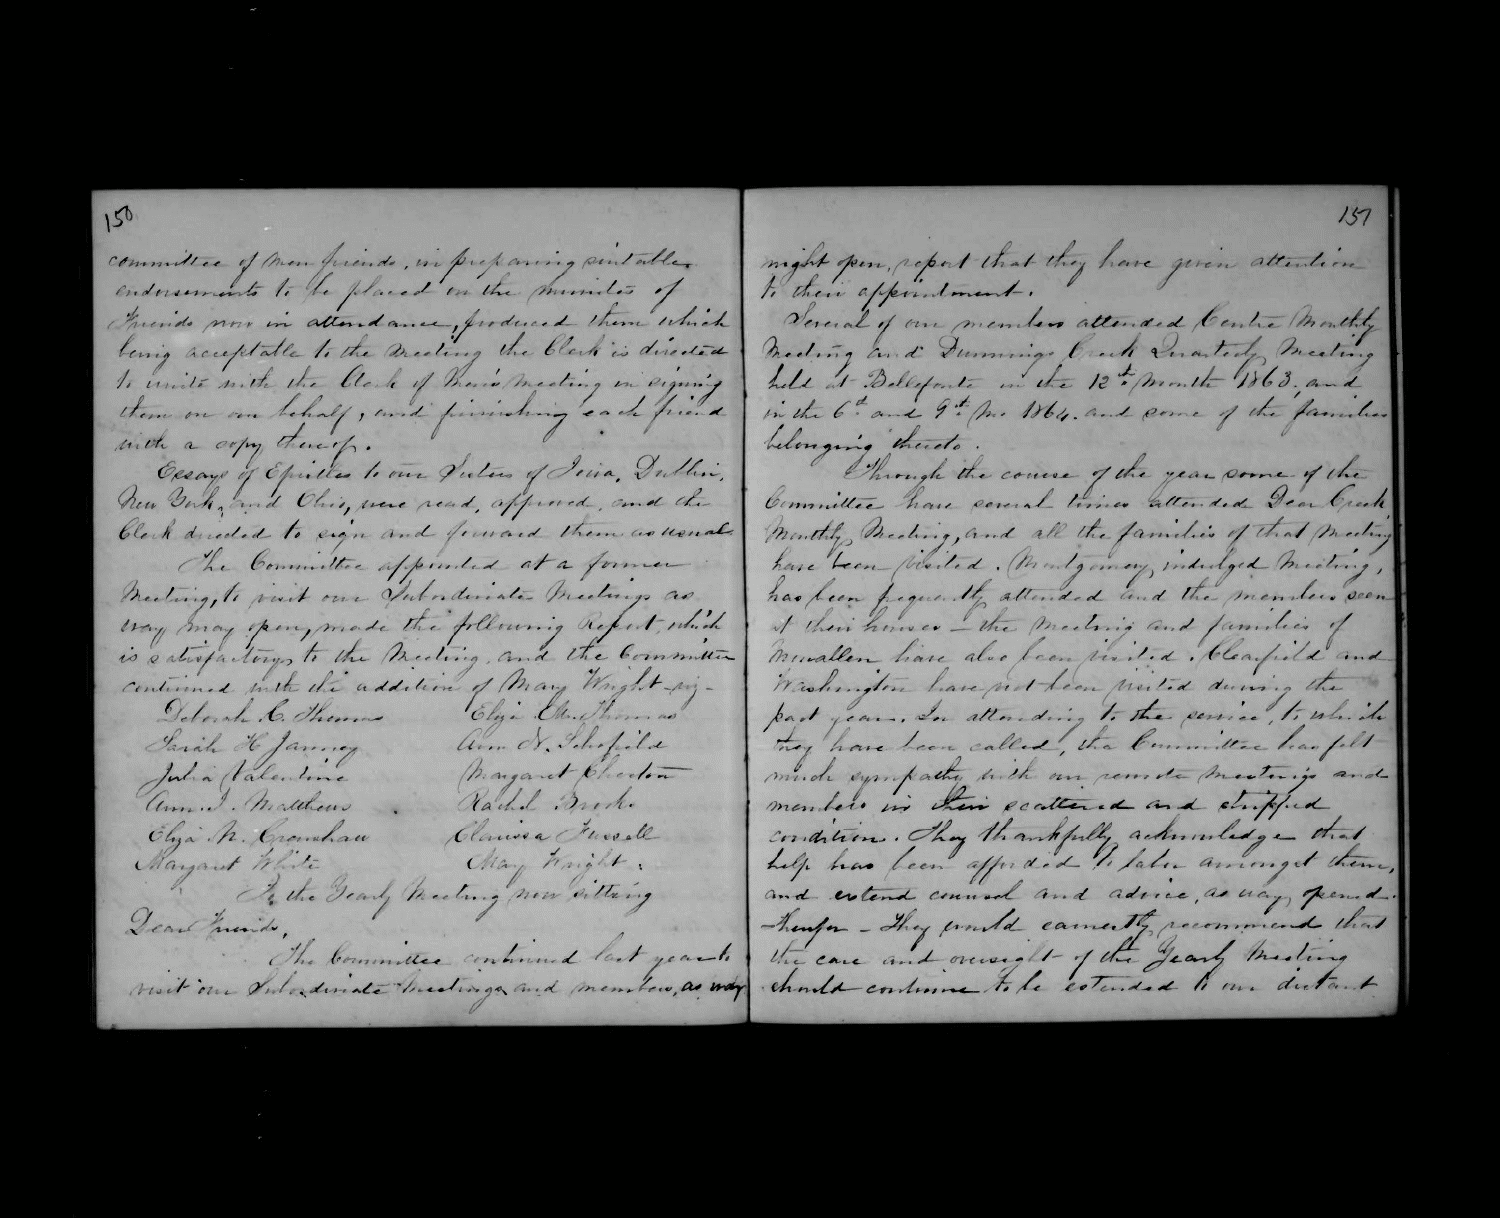 150
committee of men friends, in preparing suitable
endorsements to be placed on the minutes of
Friends now in attendance, produced them which
being acceptable to the meeting the Clerk is directed
to unite with the Clerk of Men's Meeting in signing
them on our behalf, and furnishing each friend
with a copy thereof.
Essays of Epistles to our Sisters of Iowa, Dublin,
New York, and Ohio, were read, approved, and the
Clerk directed to sign and forward them as usual.
The Committee appointed at a former
Meeting, to visit our Subordinate Meetings as
way may open, made the following Report, which
is satisfactory to the Meeting, and the Committee
continued with the addition of Mary Wright - viz -
Deborah C. Thomas Eliza M. Thomas
Sarah H Janney Ann N. Schofield
Julia Valentine Margaret
Ann J. Matthews Rachel Brooks
Eliza N. Crenshaw Clarissa Fussell
Margaret White Mary Wright.
To the Yearly Meeting now sitting
Dear Friends,
The Committee continued last year to
visit our Subordinate Meetings and members, as way
151
might open, report that they have given attention
to their appointment.
Several of our members attended Centre Monthly
Meeting and Dunnings Creek Quarterly Meeting
held at Bellefonte in the 12th month 1863, and
in the 6th and 9th Mo 1864. and some of the families
belonging thereto.
Through the course of the year some of the
Committee have several times attended Deer Creek
Monthly Meeting, and all the families of that Meeting
have been visited. Montgomery indulged Meeting,
has been frequently attended and the members seen
at their houses - the meeting and families of
Menallen have also been visited. Clearfield and
Washington have not been visited during the
past year. In attending to the service, to which
they have been called, the Committee has felt
much sympathy with our remote meetings and
members in their scattered and stripped
condition. They thankfully acknowledge that
help has been afforded to labor amongst them,
and extend counsel and advice, as way opened
therefor - They would earnestly recommend that
the care and oversight of the Yearly Meeting
should continue to be extended to our distant